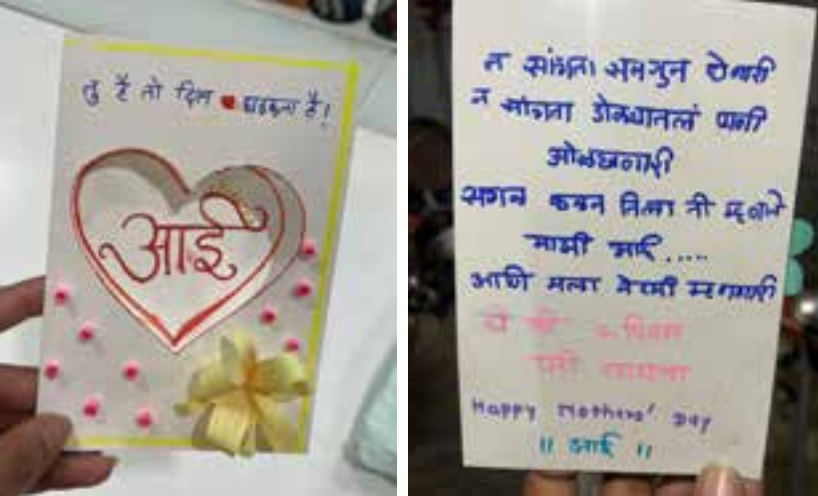 तु है तो दिल धडकता है!
आई
न सांगता समजुन घेणारी
न सांगता डोळ्यातलं पाणी
ओळखणारी
सगळं कळतं तिला ती म्हणजे
माझी आई....
आणि मला वेडी म्हणणारी
Happy Mothers' Day
|| आई ||